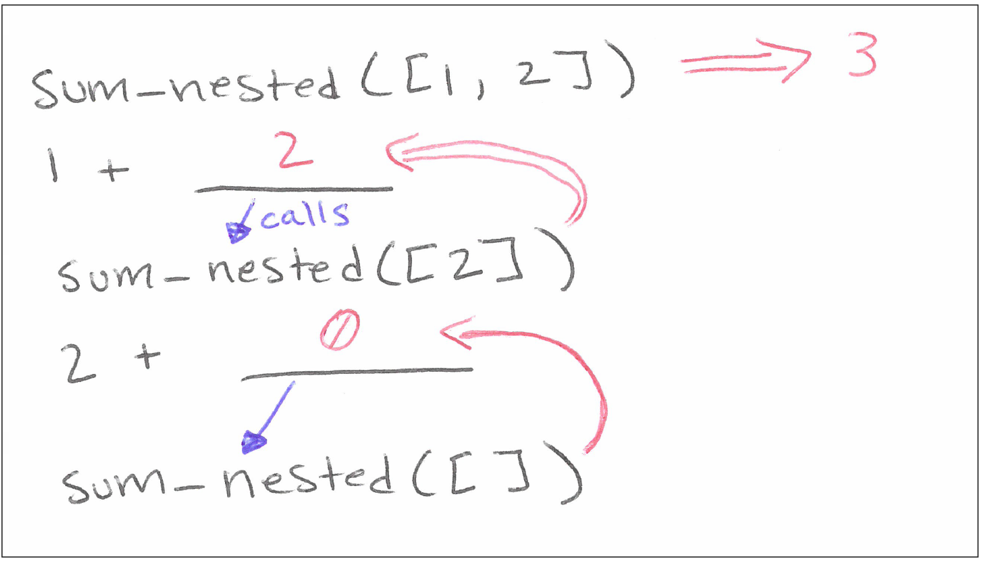 sum-nested([1, 2]) ⟹ 3
1 + 2
calls
sum-nested([2])
2 + 0
sum-nested([ ])